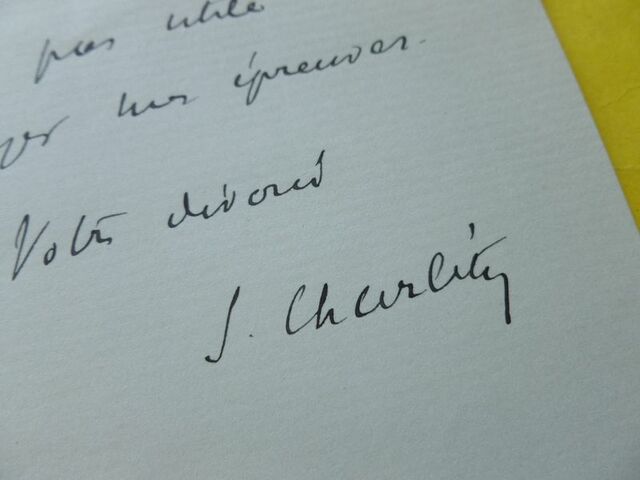 pas utile
mes épreuves.
Votre dévoué
S. Charléty